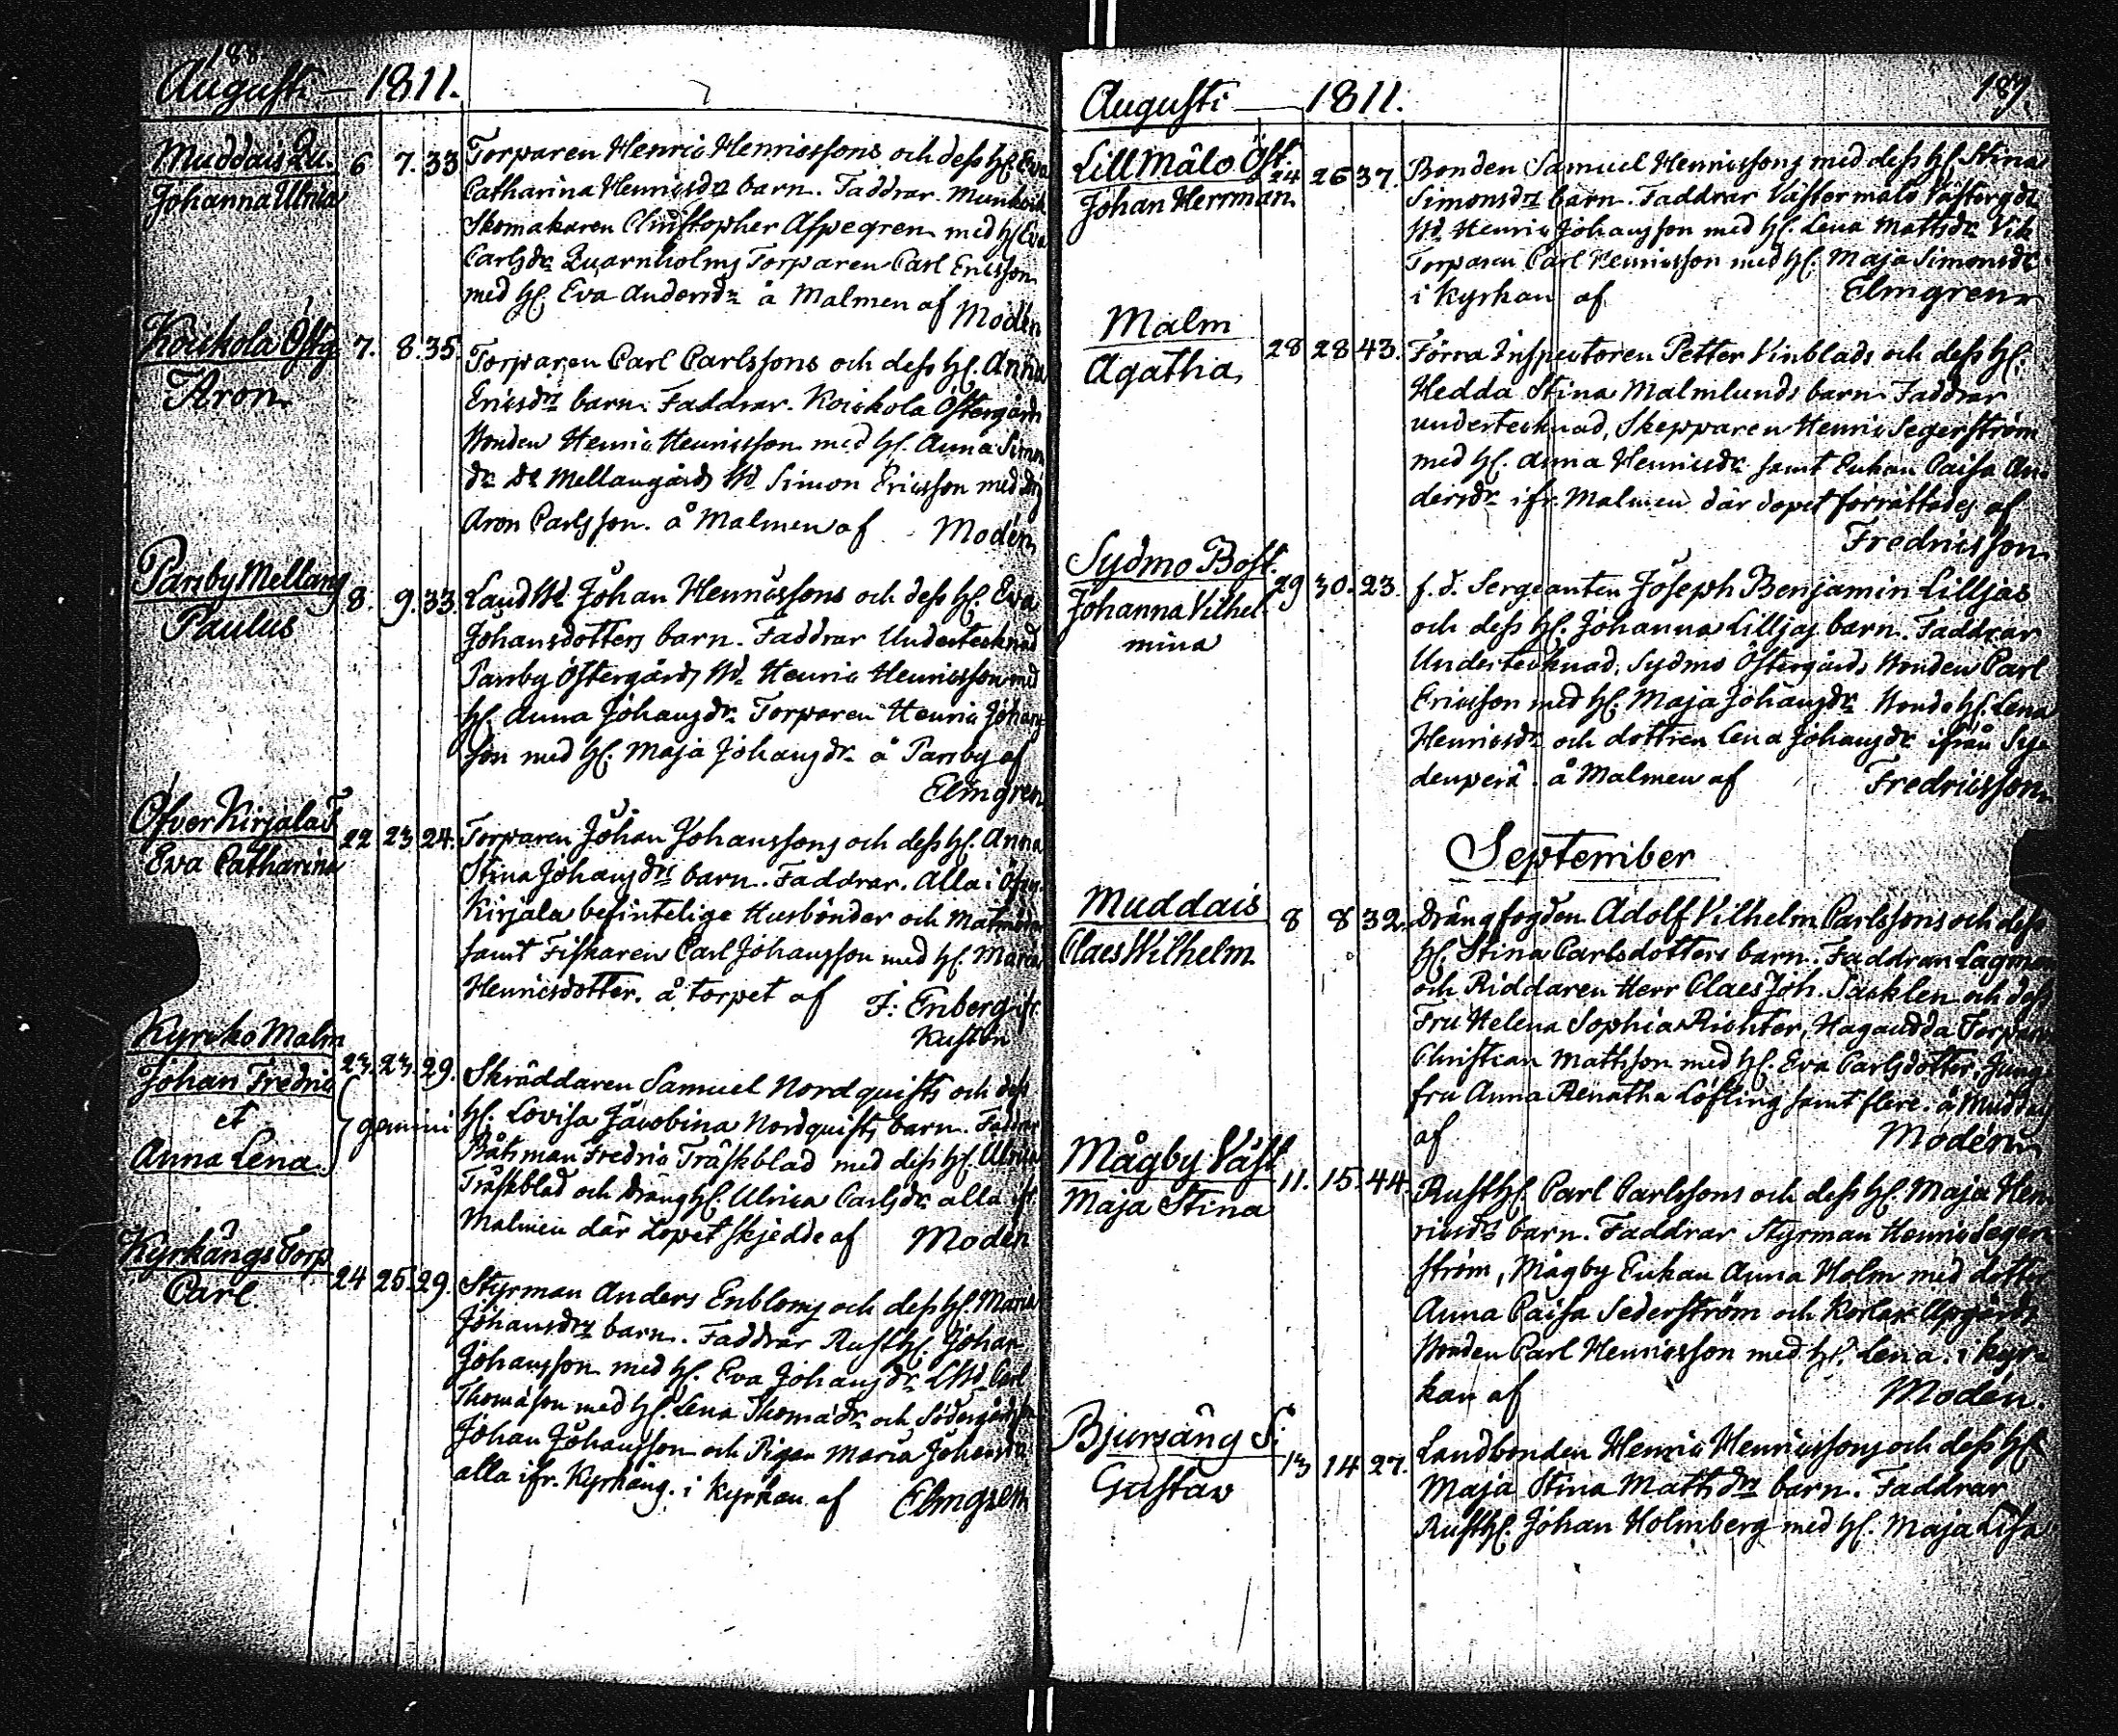 188
Augusti — 1811.
Muddais Qu. 6 7. 33
Johanna Ulrica
Torparen Henric Henricssons och dess H. Eva
Catharina Henricsdrs barn. Faddrar. Munkvik
Skomakaren Christopher Aspegren med H. Eva
Carlsdr Quarnholms Torparen Carl Ericsson
med H. Eva Andersdr å Malmen af Modén
Koickola Östg 7. 8. 35.
Aron
Torparen Carl Carlssons och dess H. Anna
Ericsdrs barn. Faddrar. Koickola Östergårds
Bonden Henric Henricsson med H. Anna Simons
dr Do Mellangårds Bd Simon Ericsson med drg
Aron Carlsson. å Malmen af Modén
Parsby Mellang 8. 9. 33.
Paulus
LandBd Johan Henricssons och dess H. Eva
Johansdotters barn. Faddrar Undertecknad
Parsby Östergårds Bd Henric Henricsson med
H. Anna Johansdr Torparen Henric Johans
son med H. Maja Johansdr å Parsby af
Elmgren
Öfver Kirjala T 22 23 24.
Eva Catharina
Torparen Johan Johanssons och dess H. Anna
Stina Johansdrs barn. Faddrar. Alla i Öfver
Kirjala befintelige Husbönder och Matmödrar
samt Fiskaren Carl Johansson med H. Maria
Henricsdotter. å torpet af F. Enberg fr.
Kustön
Kyrcko Malm 23. 23. 29.
Johan Fredric
et } gemini
Anna Lena.
Skräddaren Samuel Nordquists och dess
H. Lovisa Jacobina Nordquists barn. Faddrar
Båtsman Fredric Träskblad med dess H. Ulrica
Träskblad och DrängH. Ulrica Carlsdr alla ifr.
Malmen där dopet skjedde af Modén
Kyrkängs Torp 24 25. 29.
Carl.
Styrman Anders Enbloms och dess H. Maria
Johansdrs barn. Faddrar RustH. Johan
Johansson med H. Eva Johansdr LBd Carl
Thomasson med H. Lena Thomædr och Södergårds
Johan Johansson och Pigan Maria Johansdr
alla ifr. Kyrkäng. i Kyrkan af Elmgren
189.
Augusti — 1811.
Lill Målo Öst. 24 26 37.
Johan Herrman
Bonden Samuel Henricssons med dess H. Stina
Simonsdrs barn. Faddrar Västermålo Västergds
Bd Henric Johansson med H. Lena Mattsdr Vik
Torparen Carl Henricsson med H. Maja Simonsdr
i Kyrkan af Elmgren
Malm 28 28 43.
Agatha
Förra Inspectoren Petter Vinblads och dess H.
Hedda Stina Malmlunds barn Faddrar
undertecknad, Skepparen Henric Segerström
med H. Anna Henricsdr samt Enkan Caisa An
dersdr ifr. Malmen där dopet förrättades af
Fredricsson
Sydmo Bost. 29 30. 23.
Johanna Vilhel
mina
f. d. Sergeanten Joseph Benjamin Lilljas
och dess H. Johanna Lilljas barn. Faddrar
Undertecknad, Sydmo Östergårds Bonden Carl
Ericsson med H. Maja Johansdr BondeH. Lena
Henricsdr och dottren Lena Johansdr ifrån Sy-
denperä. å Malmen af Fredricsson
September
Muddais 8 8 32.
Claes Wilhelm.
Drängfogden Adolf Vilhelm Carlssons och dess
H. Stina Carlsdotters barn. Faddrar Lagman
och Riddaren Herr Claes Joh. Sacklen och dess
Fru Helena Sophia Richter, Hagaudda Torparen
Christian Mattsson med H. Eva Carlsdotter Jung
fru Anna Renatha Löfling samt flere. å Muddais
af Modén
Mågby Väst 11. 15. 44.
Maja Stina
RustH. Carl Carlssons och dess H. Maja Hen
ricsdrs barn. Faddrar Styrman Henric Seger
ström, Mågby Enkan Anna Holm med dotter
Anna Caisa Sederström och Korlax Uppgårds
Bonden Carl Henricsson med H. Lena. i kyr-
kan af Modén.
Bjursäng S. 13 14 27.
Gustav
Landbonden Henric Henricssons och dess H.
Maja Stina Mattsdrs barn. Faddrar
RustH. Johan Holmberg med H. Maja Lisa